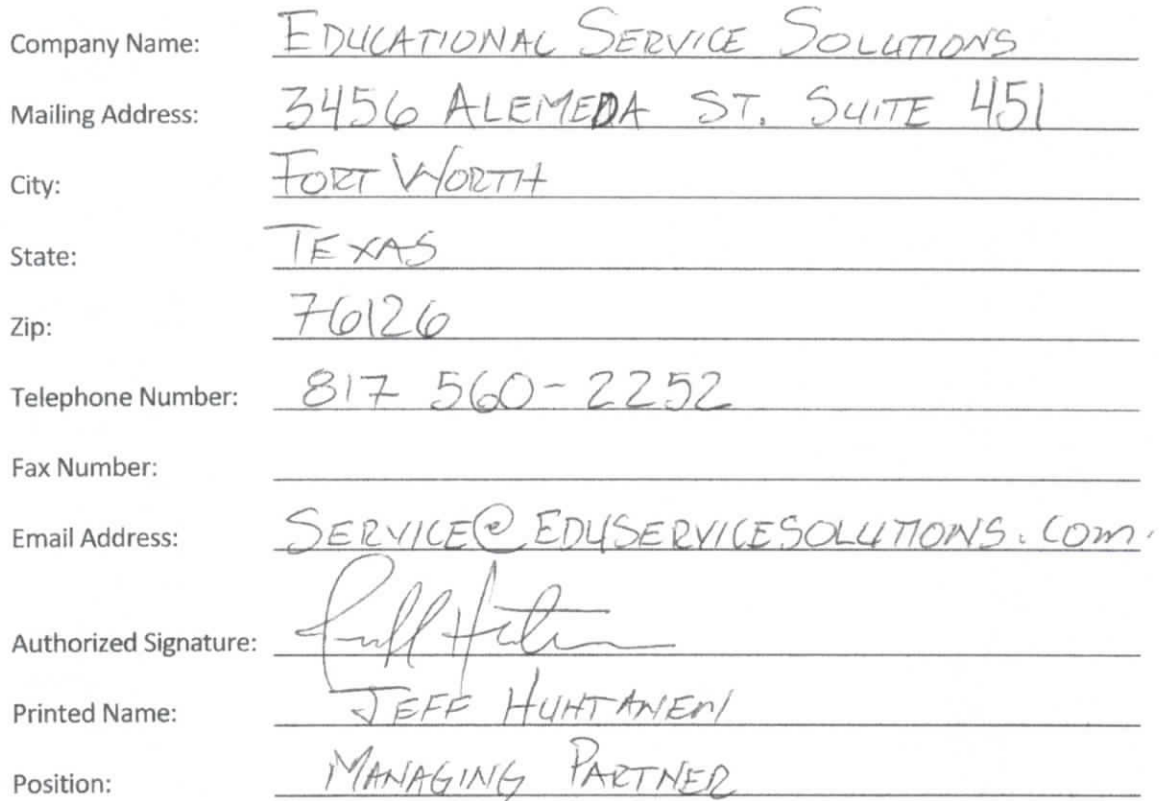 Company Name: EDUCATIONAL SERVICE SOLUTIONS
Mailing Address: 3456 ALEMEDA ST. SUITE 451
City: FORT WORTH
State: TEXAS
Zip: 76126
Telephone Number: 817 560-2252
Fax Number:
Email Address: SERVICE@EDUSERVICESOLUTIONS.COM
Authorized Signature:
Printed Name: JEFF HUHTANEMI
Position: MANAGING PARTNER